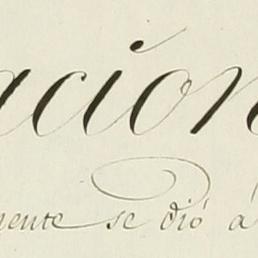 acion
mente se dió á